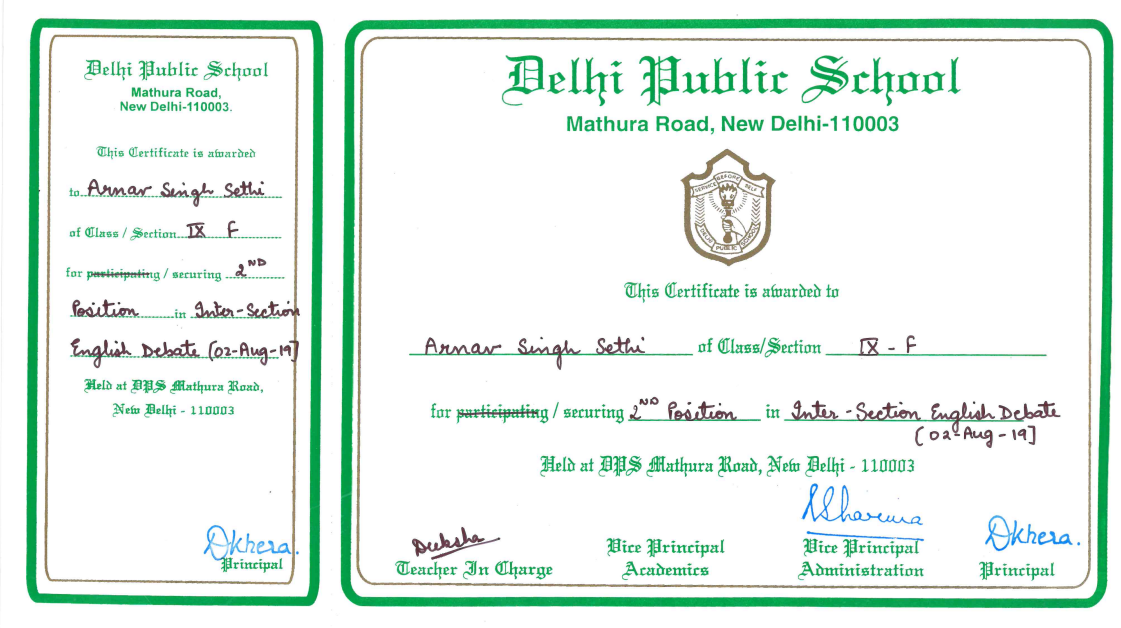 Delhi Public School
Mathura Road,
New Delhi-110003.
This Certificate is awarded
to Arnav Singh Sethi
of Class / Section IX F
for participating / securing 2ND
Position in Inter-Section
English Debate [02-Aug-19]
Held at DPS Mathura Road,
New Delhi - 110003
Dkhera.
Principal
Delhi Public School
Mathura Road, New Delhi-110003
SERVICE BEFORE SELF
DELHI PUBLIC SCHOOL
This Certificate is awarded to
Arnav Singh Sethi of Class/Section IX - F
for participating / securing 2ND Position in Inter-Section English Debate
[02-Aug-19]
Held at DPS Mathura Road, New Delhi - 110003
Deeksha RSharma Dkhera.
Teacher In Charge Vice Principal Academics Vice Principal Administration Principal